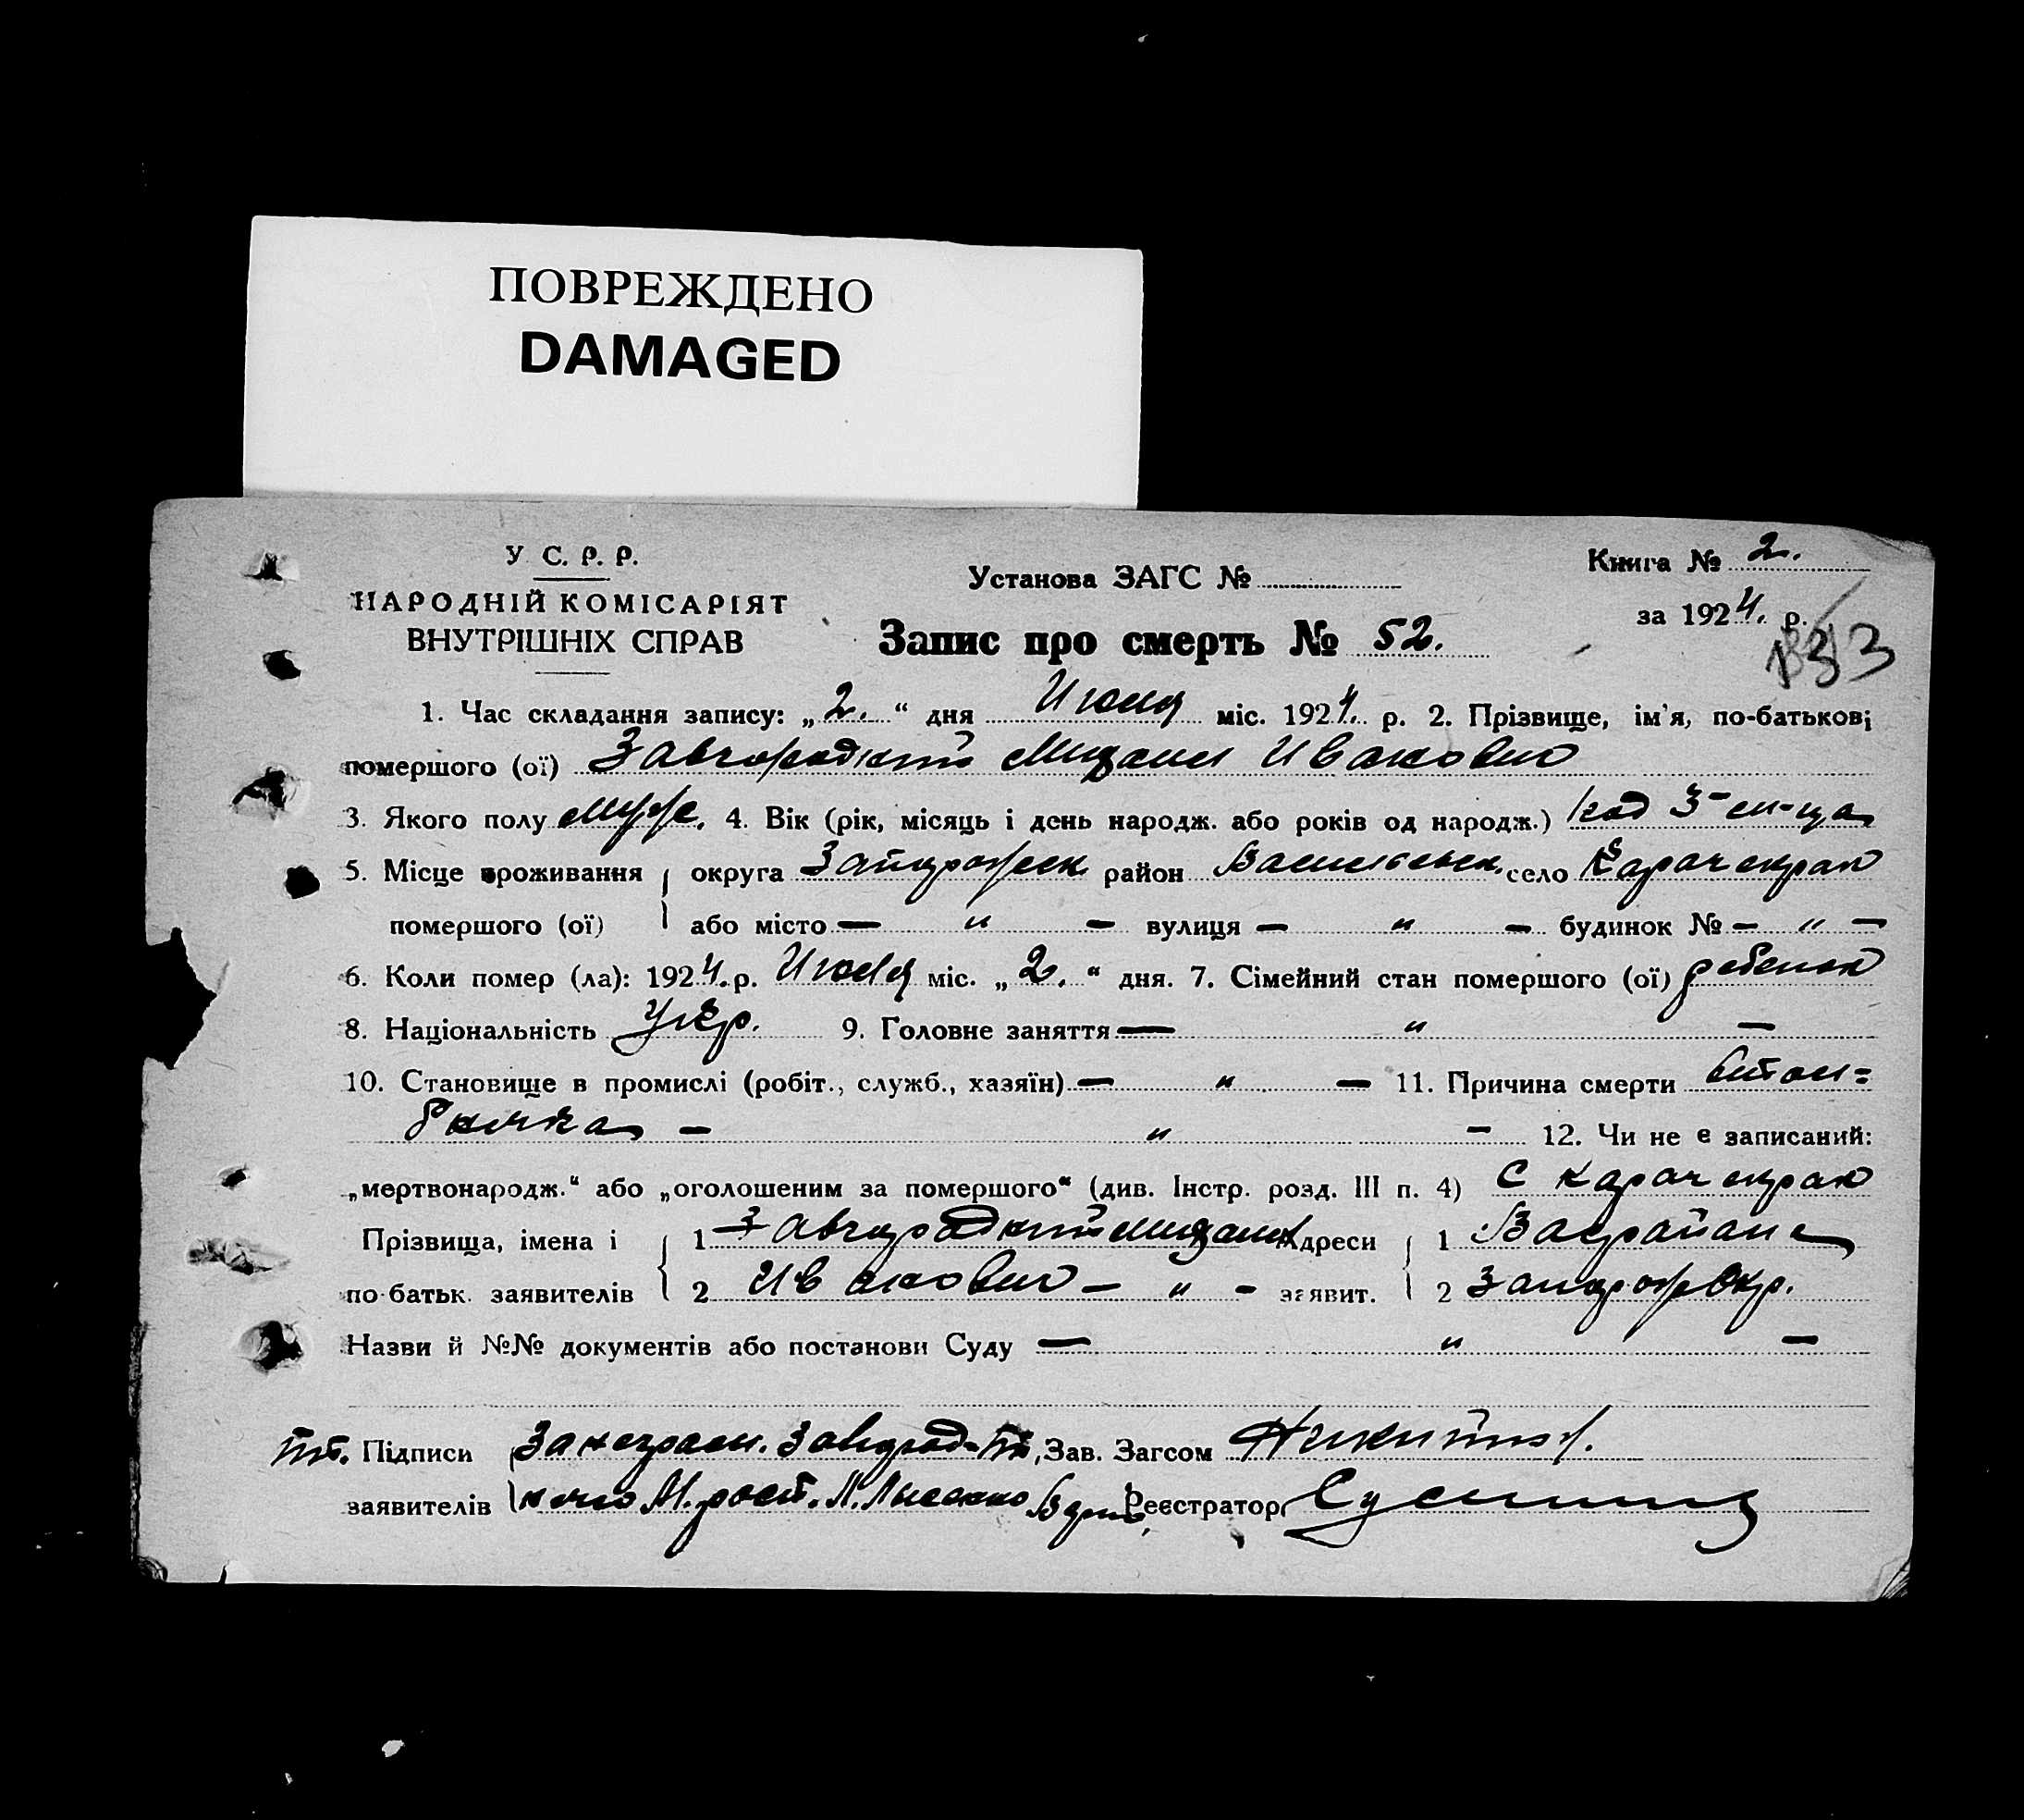 ПОВРЕЖДЕНО
DAMAGED
У С. Р. Р.
НАРОДНІЙ КОМІСАРІЯТ
ВНУТРІШНІХ СПРАВ
Установа ЗАГС №
Запис про смерть № 52.
Книга № 2.
за 1924. р.
1. Час складання запису: „2.“ дня Июля міс. 1924. р. 2. Прізвище, ім'я, по-батькові
помершого (ої) Завгородний Михаил Иванович
3. Якого полу муж. 4. Вік (рік, місяць і день народж. або років од народж.) год 3-м-ца
5. Місце проживання округа Запорожск район Васильевск. село Карачекрак
помершого (ої) або місто — " — вулиця — " — будинок № — " —
6. Коли помер (ла): 1924. р. Июля міс. „2.“ дня. 7. Сімейний стан помершого (ої) ребенок
8. Національність Укр. 9. Головне заняття — " —
10. Становище в промислі (робіт., служб., хазяїн) — " — 11. Причина смерти
— " — 12. Чи не є записаний:
„мертвонародж.“ або „оголошеним за помершого“ (див. Інстр. розд. III п. 4) С Карачекрак
Прізвища, імена і 1 Завгородний Михаил Адреси 1 Васрайона
по батьк. заявителів 2 Иванович — " — заявит. 2 Запорож Окр.
Назви й №№ документів або постанови Суду — " —
Підписи За неграм. Зав. Загсом
заявителів М. рост. Л. Лысенко Реєстратор